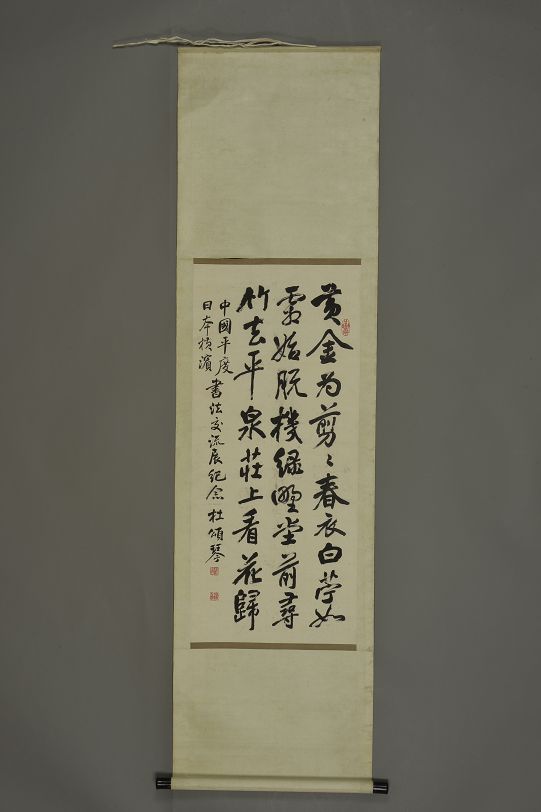 黄金为剪〻春衣白苧如
雪始脱機緑野堂前尋
竹去平泉莊上看花歸
中國平度
日本横濱
書法交流展紀念 杜頌琴